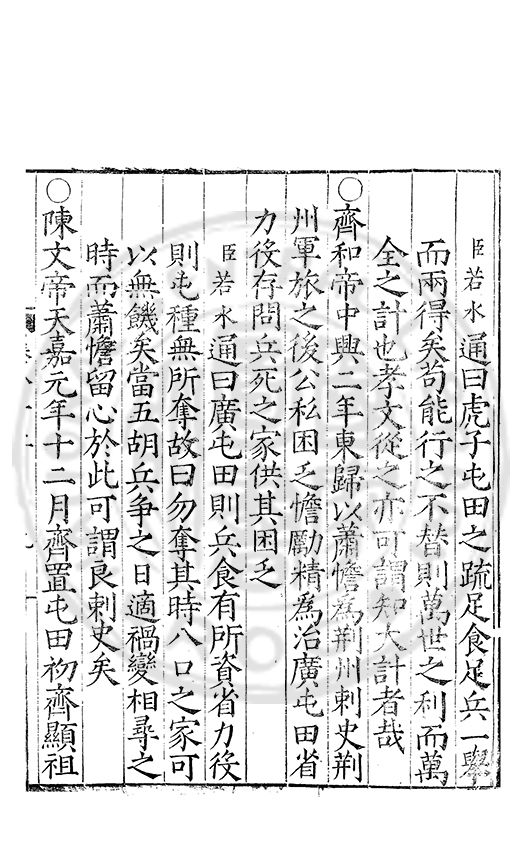 臣若水通曰虎子屯田之疏足食足兵一舉
而兩得矣苟能行之不替則萬世之利而萬
全之計也孝文從之亦可謂知大計者哉
○齊和帝中興二年東歸以蕭憺為荆州刺史荆
州軍旅之後公私困乏憺勵精為治廣屯田省
力役存問兵死之家供其困乏
臣若水通曰廣屯田則兵食有所資省力役
則屯種無所奪故曰勿奪其時八口之家可
以無饑矣當五胡兵争之日適禍變相尋之
時而蕭憺留心於此可謂良刺史矣
○陳文帝天嘉元年十二月齊置屯田初齊顯祖